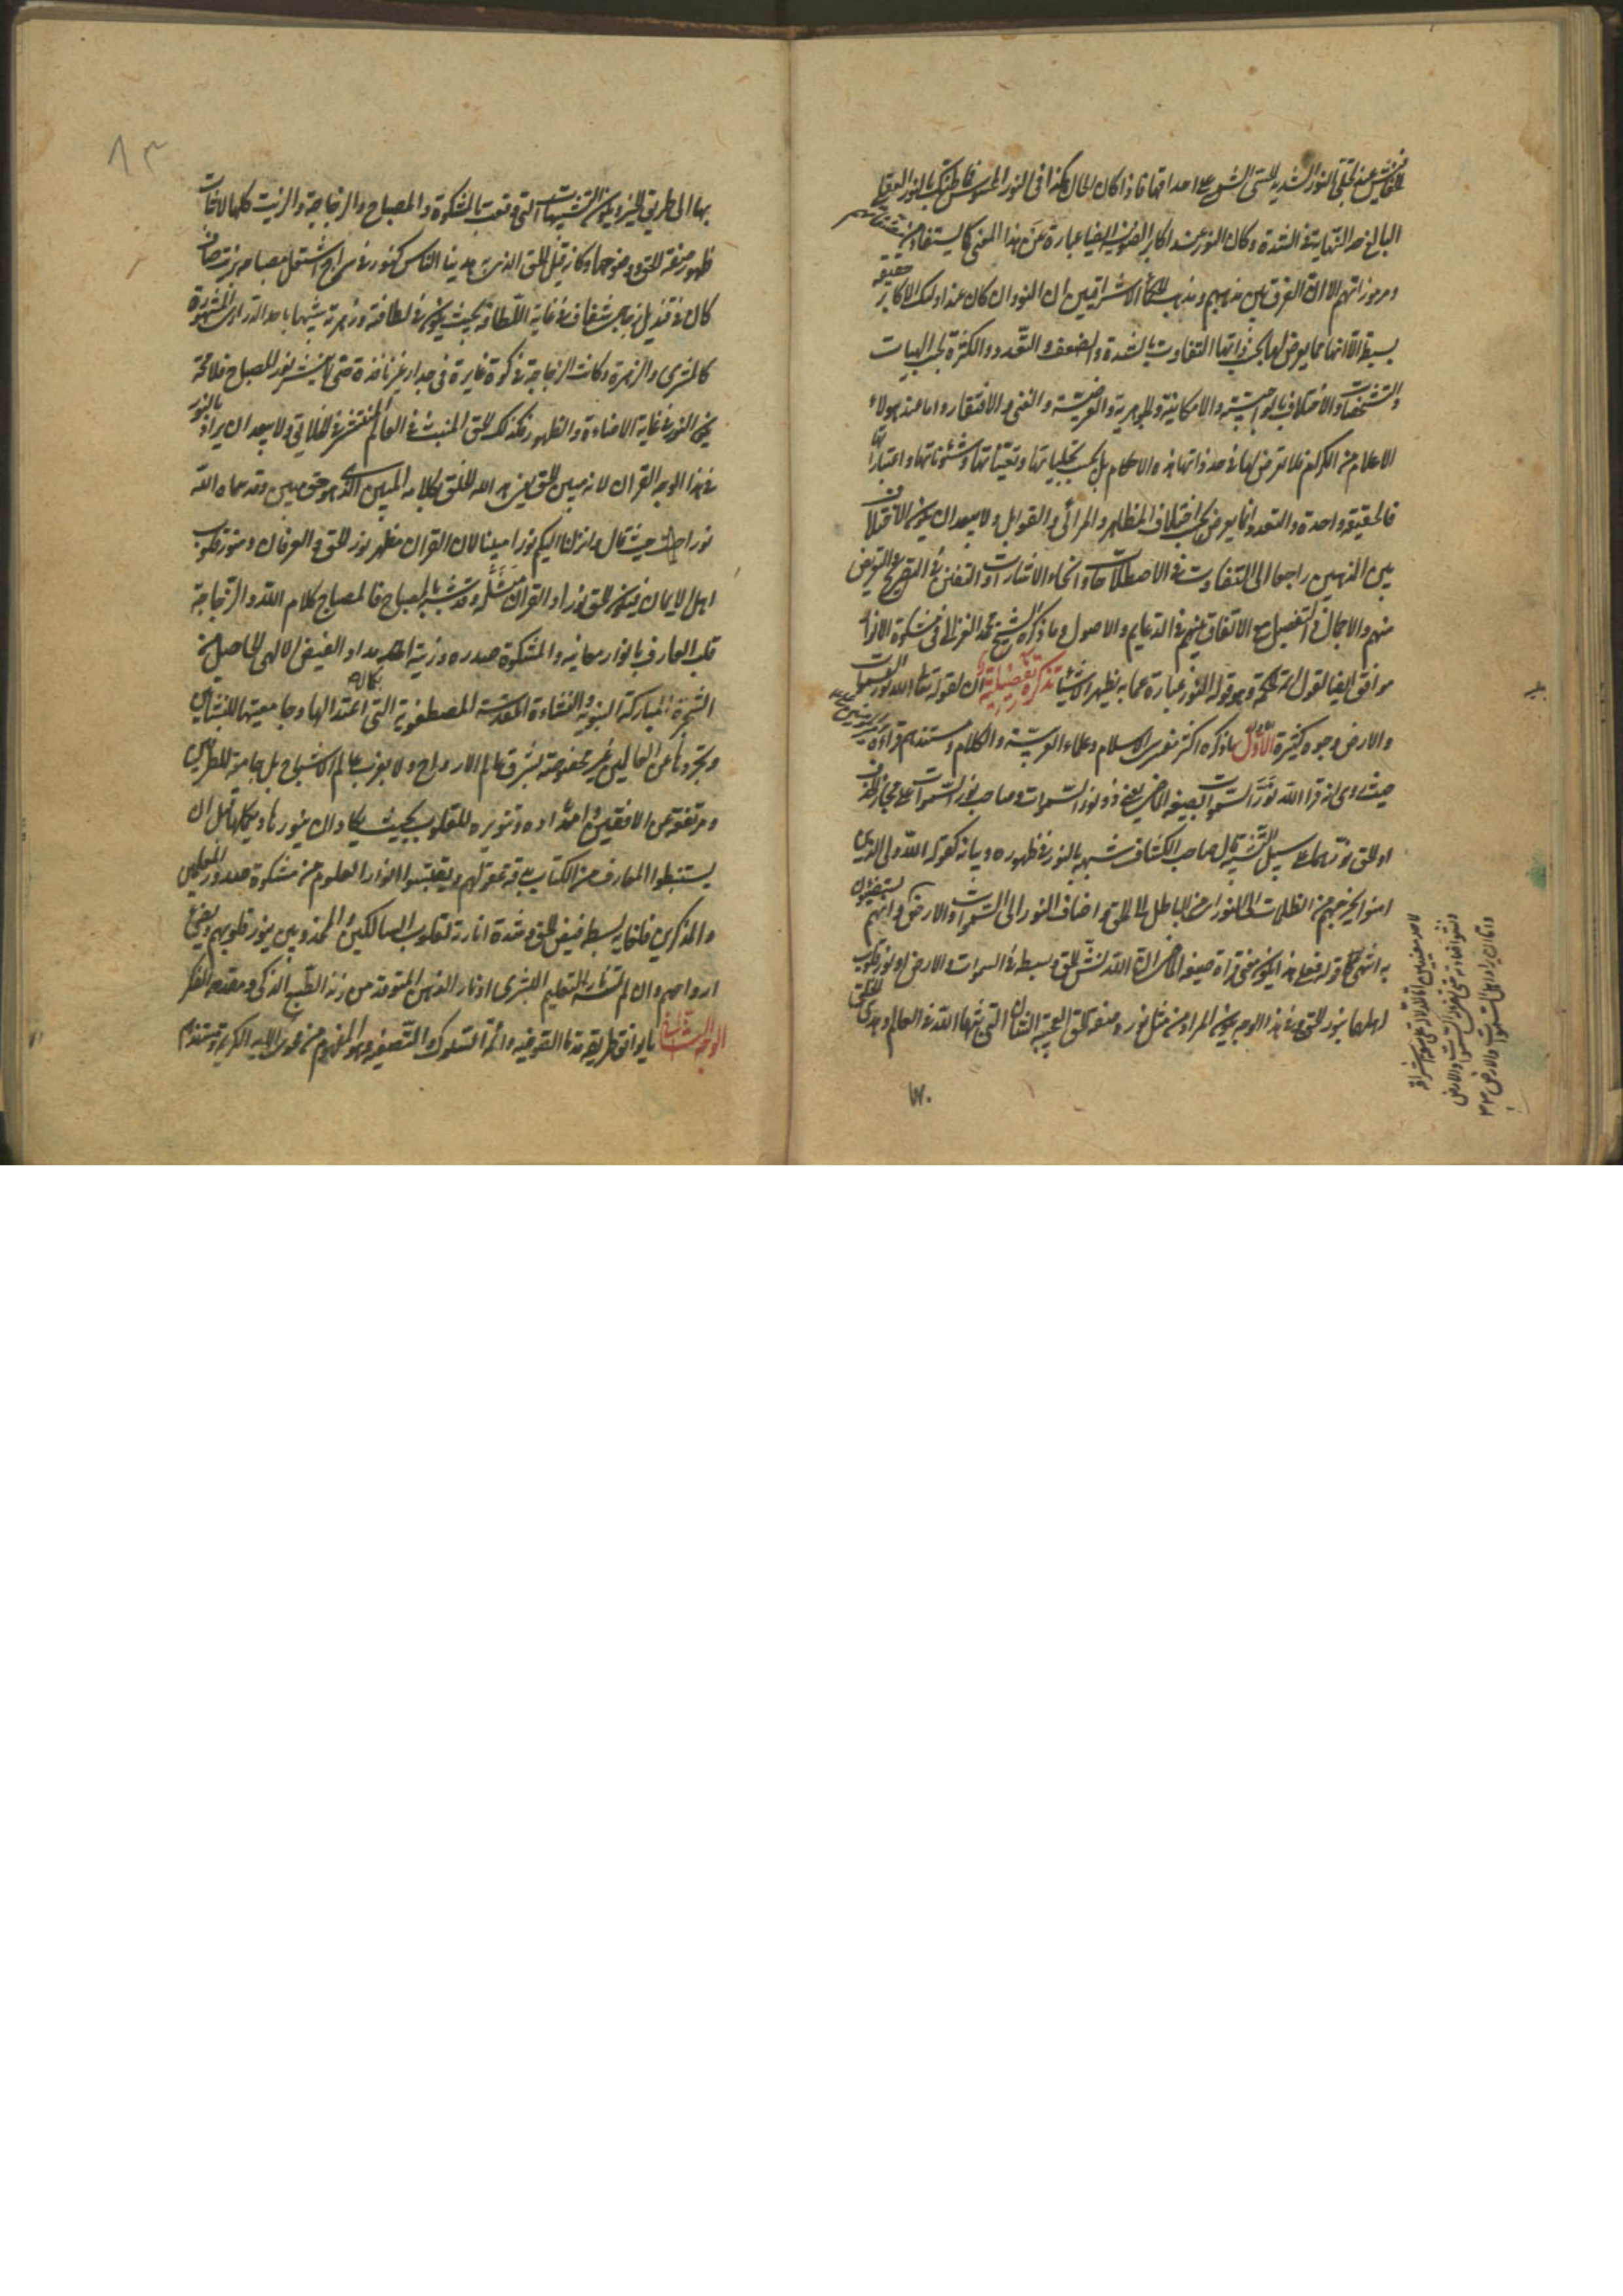 للخفافيش عند تجلي النور الشديد الحسي الشمسي على احداقها فاذا كان الحال هكذا في النور المحسوس فما ظنك بالنور العقلي
البالغ حد النهاية في الشدة وكان النور عند اكابر الصوفية ايضا عبارة عن هذا المعنى كما يستفاد من
ومرموزاتهم الا ان الفرق بين مذهبهم ومذهب الحكماء الاشراقيين ان النور وان كان عند اولئك الاكابر حقيقة
بسيطة الا انها مما يعرض لها بحسب ذواتها التفاوت بالشدة والضعف والتعدد والكثرة بحسب الهيات
والتشخصات والاختلاف بالواجبية والامكانية والجوهرية والعرضية والغنى والافتقار واما عند هولاء
الاعلام من الكرام فلا يعرض لها في حد ذاتها هذه الاحكام بل بحسب تجلياتها وتعيناتها وشئوناتها واعتباراتها
فالحقيقة واحدة والتعدد انما يعرض بحسب اختلاف المظاهر والمرائي والقوابل ولا يبعد ان يكون الاختلاف
بين المذهبين راجعا الى التفاوت في الاصطلاحات وانحاء الاشارات والتفنن في التصريح والتعريض
منهم والاجمال والتفصيل مع الاتفاق بينهم في الدعايم والاصول وما ذكره الشيخ محمد الغزالي في مشكوة الانوار
موافق ايضا لقول ائمة الحكمة وهو قوله النور عبارة عما به يظهر الاشياء تذكرة تفصيلية ان لقوله تعالى الله نور السموات
والارض وجوه كثيرة الاول ما ذكره اكثر مفسرى الاسلام وعلماء العربية والكلام ومستندهم قراءة امير المومنين
حيث روى انه قرا الله نَوَّرَ السموات بصيغة الماضي بمعنى ذو نور السموات وصاحب نور السموات على مجاز الحذف
او الحق نور هما على سبيل التشبيه قال صاحب الكشاف شبهه بالنور في ظهوره وبيانه كقوله الله ولى الذين
امنوا يخرجهم من الظلمات الى النور اى من الباطل الى الحق واضاف النور الى السموات والارض وانهم يستضيئون
به انتهى كلامه فعلى هذا يكون معنى قراءة صيغة الماضي الله نشر الحق وبسطه في السموات والارض او نور قلوب
اهلها بنور الحق وفي هذا الوجه يكون المراد من مثل نوره صفة الحق العجيبة الشان التي بثها الله في العالم وهدى الخلق
لاحد معنيين اما للدلالة على سعة اشراقه
وفشو اضاءته حتى تضيء له السموات والارض
واما ان يراد اهل السموات والارض
٨٣
بها الى طريق الخير ويكون التشبيهات التي وقعت بالمشكوة والمصباح والزجاجة والزيت كلها لاثبات
ظهور صفة الحق ووضوحها وكانه قيل الحق الذي هدينا الناس كنور في سراج اشتعل مصباحه بزيت صاف
كان في قنديل زجاجي شفاف في غاية اللطافة بحيث يكون في لطافته وزهرته شبيها باحد الدراري المشهورة
كالمشترى والزهرة وكانت الزجاجة في كوة غايرة في جدار غير نافذة حتى لا ينتشر نور المصباح فلا محة
يكون النور في غاية الاضاءة والظهور فكذلك الحق المنبث في العالم المنتشر في الخلايق ولا يبعد ان يراد بالنور
في هذا الوجه القران لانه مبين الحق يعني هدى الله الخلق بكلامه المبين الذي هو حق مبين وقد سماه الله
نورا حيث قال وانزلنا اليكم نورا مبينا لان القران مظهر نور الحق والعرفان ومنور قلوب
اهل الايمان فيكون الحق نورا والقران مثله وقد شبه بالمصباح فالمصباح كلام الله والزجاجة
قلب العارف بانوار معانيه والمشكوة صدره وزيته امداد الفيض الالهى الحاصل من
الشجرة المباركة النبوية والنشاءة المقدسة المصطفوية التي اعتدالها وجامعيتها للنشاتين
وتجردها عن العالمين غير مخصوصة بشرق عالم الارواح ولا بغرب عالم الاشباح بل جامعة للطرفين
ومرتفعة عن الافقين وامداده وتنويره للقلوب بحيث يكاد ان ينورها ويكملها قبل ان
يستنبطوا المعارف من الكتاب بقوة عقولهم ويقتبسوا انوار العلوم من مشكوة صدور المعلمين
والمذكرين فلغاية بسطه فيض الحق وشدة انارته لقلوب السالكين والمجذوبين ينور قلوبهم ويضيء
ارواحهم وان لم تمسسه نار التعليم البشرى او نار الذهن المتوقدة من زند الطبع الذكى ومقدحة الفكر
الوجه الثاني ما يوافق طريقة قدماء الصوفيه وائمة السلوك والتصفيه وهو المفهوم من فحوى الايه الكريمة ومستندهم